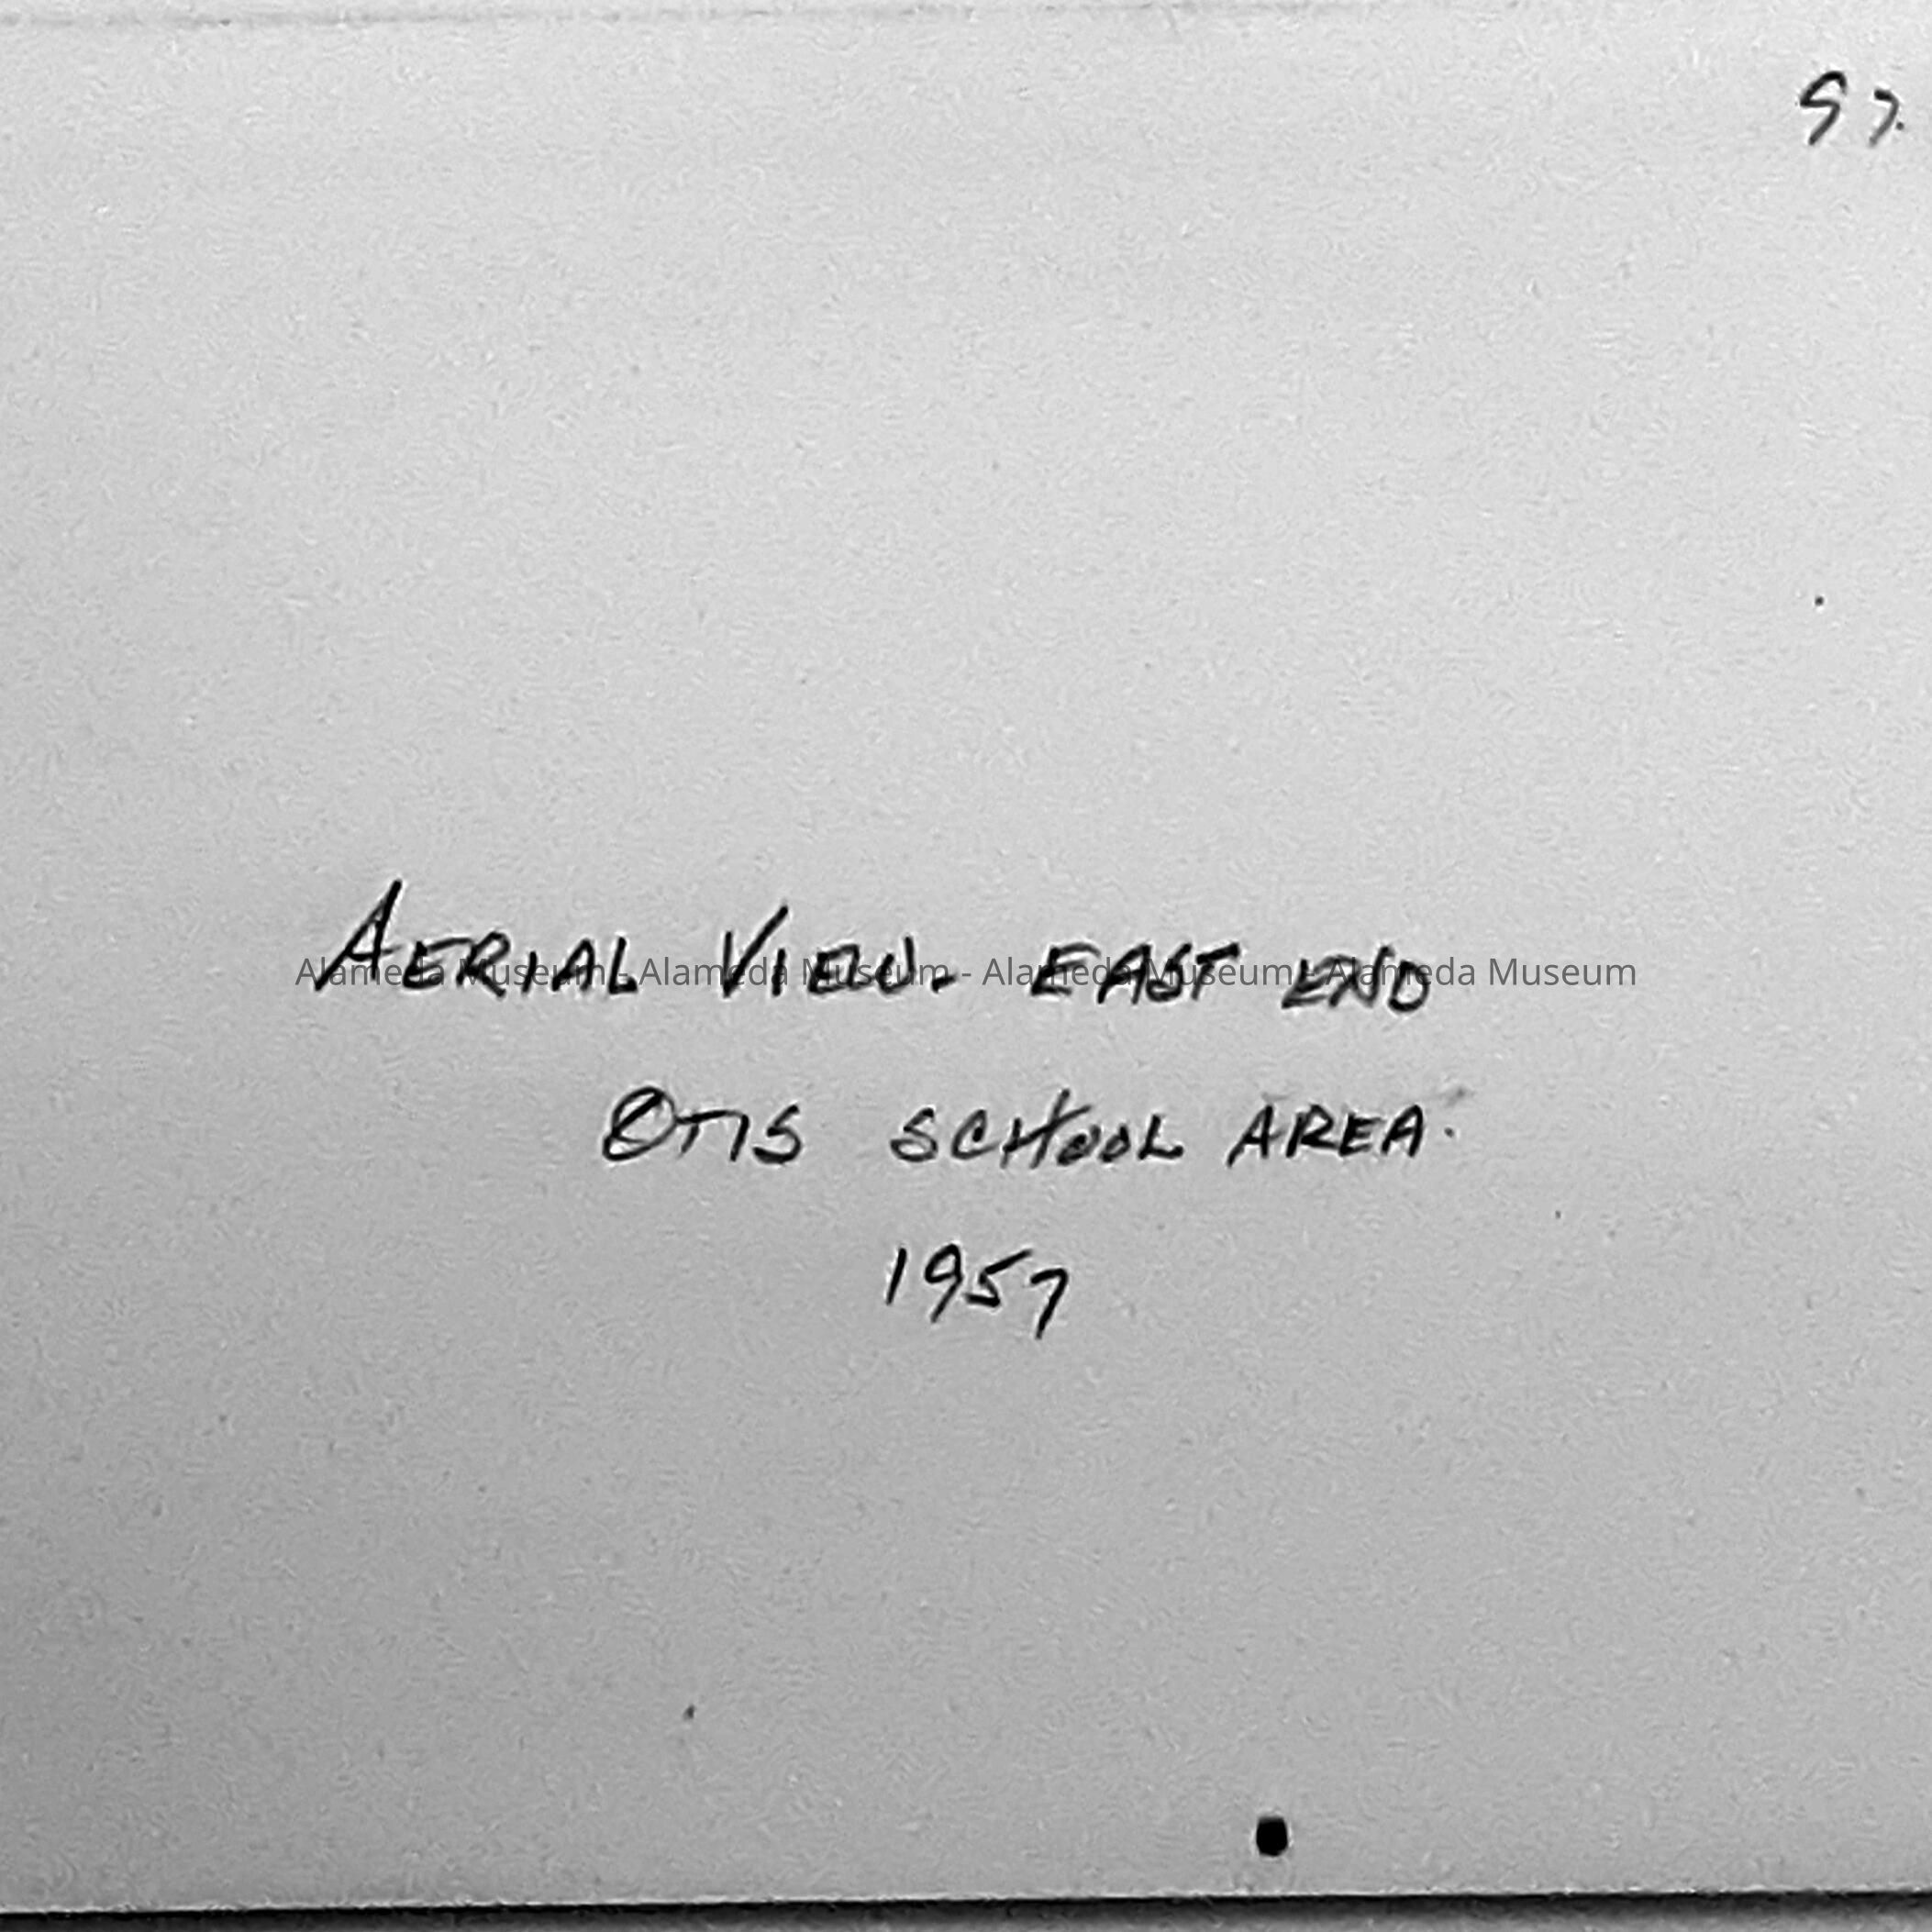 97.
AERIAL VIEW. EAST END
Alameda Museum - Alameda Museum - Alameda Museum - Alameda Museum
OTIS SCHOOL AREA.
1957